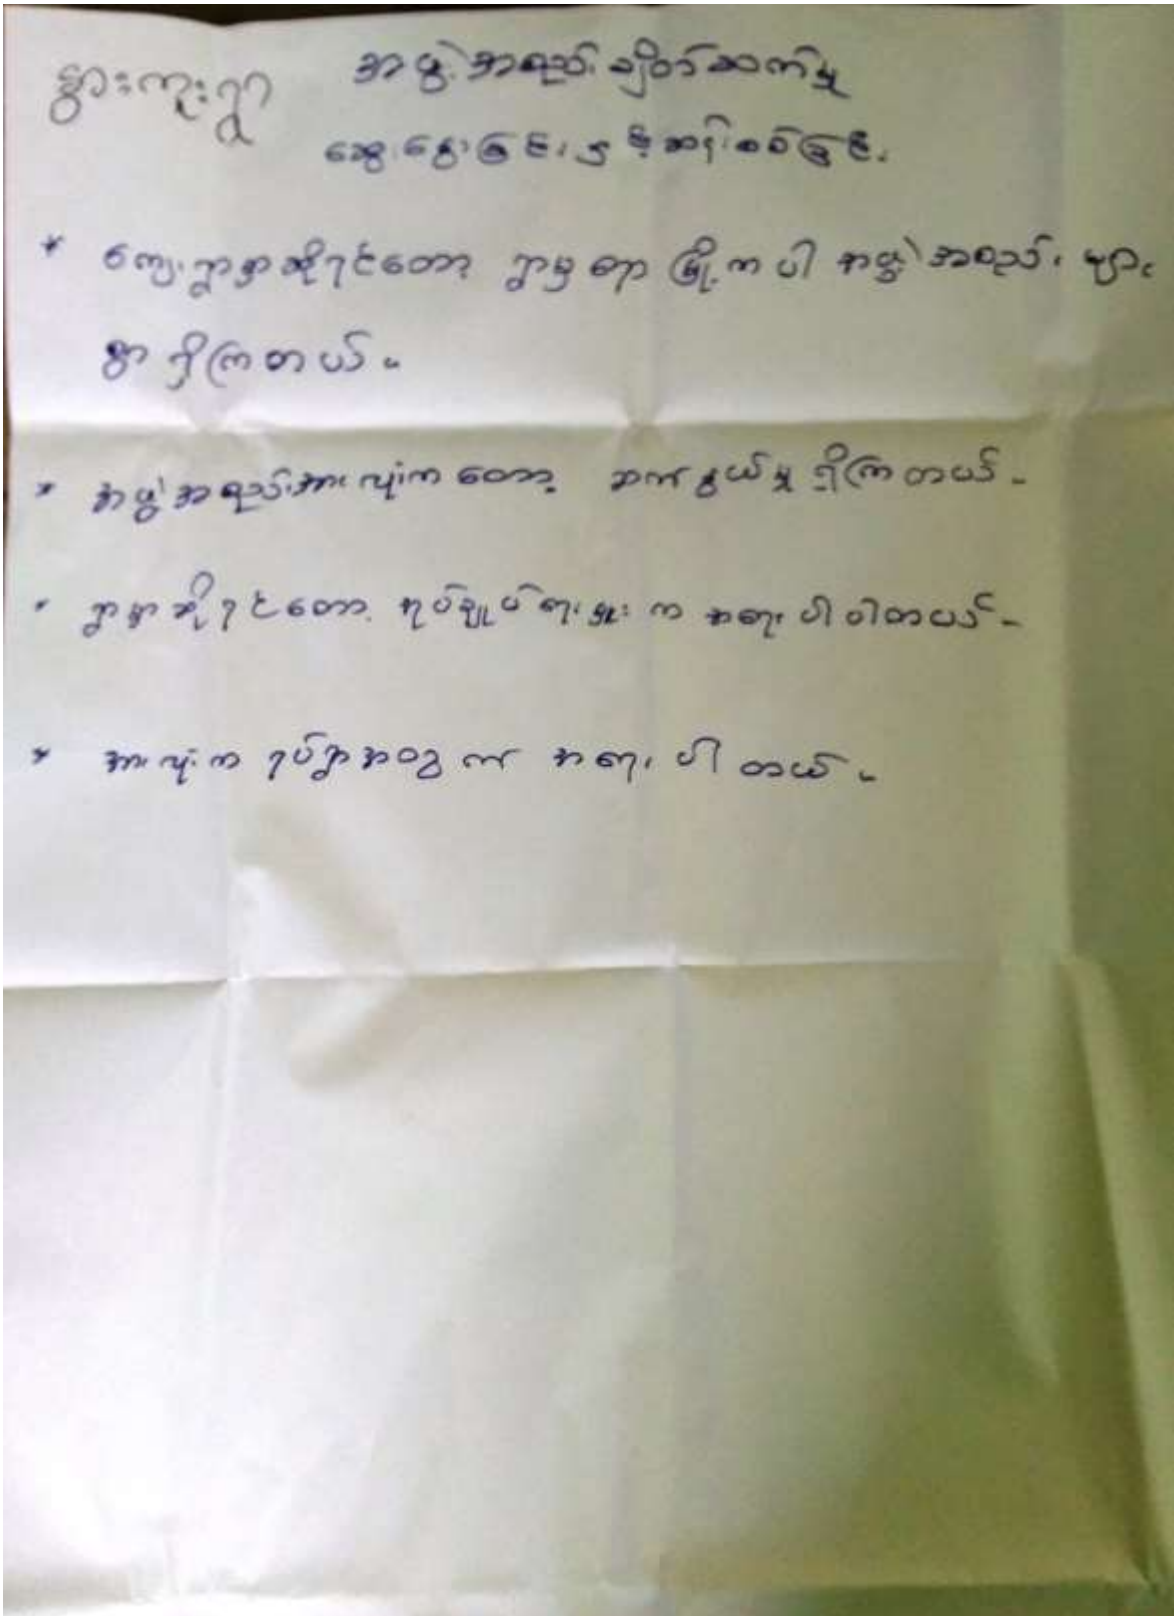 နွားကူးရွာ အဖွဲ့အစည်းချိတ်ဆက်မှု
ဆွေးနွေးခြင်းနှင့်ဆန်းစစ်ခြင်း
* ကျေးရွာမှာဆိုရင်တော့ ရွာမှ ရော မြို့ကပါ အဖွဲ့အစည်းများ
စွာ ရှိကြတယ်။
* အဖွဲ့အစည်းအားလုံးကတော့ ဆက်နွယ်မှု ရှိကြတယ်။
* ရွာမှာဆိုရင်တော့ အုပ်ချုပ်ရေးမှူးက အရေးပါပါတယ်။
* အားလုံးက ရပ်ရွာအတွက် အရေးပါတယ်။